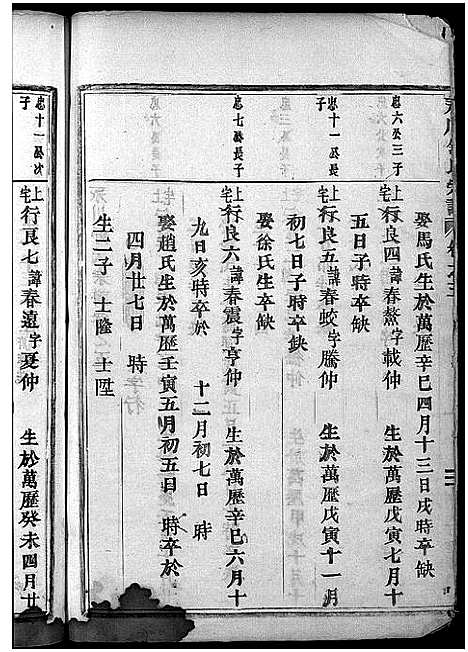 娶馬氏生於萬歷辛巳四月十三日戌時卒缺
忠六公三子
上宅行良四諱春熬字載仲 生於萬歷戊寅七月十
五日子時卒缺
忠十一公長子
上宅行良五諱春蛟字騰仲 生於萬歷戊寅十一月
初七日子時卒缺
娶徐氏生卒缺
忠七公長子
上宅行良六諱春震字亨仲 生於萬歷辛巳六月十
九日亥時卒於 十二月初七日 時
娶趙氏生於萬歷壬寅五月初五日 時卒於
四月廿七日 時
生二子 士隆 士陞
忠十一公次子
上宅行良七諱春遠字夏仲 生於萬歷癸未四月廿